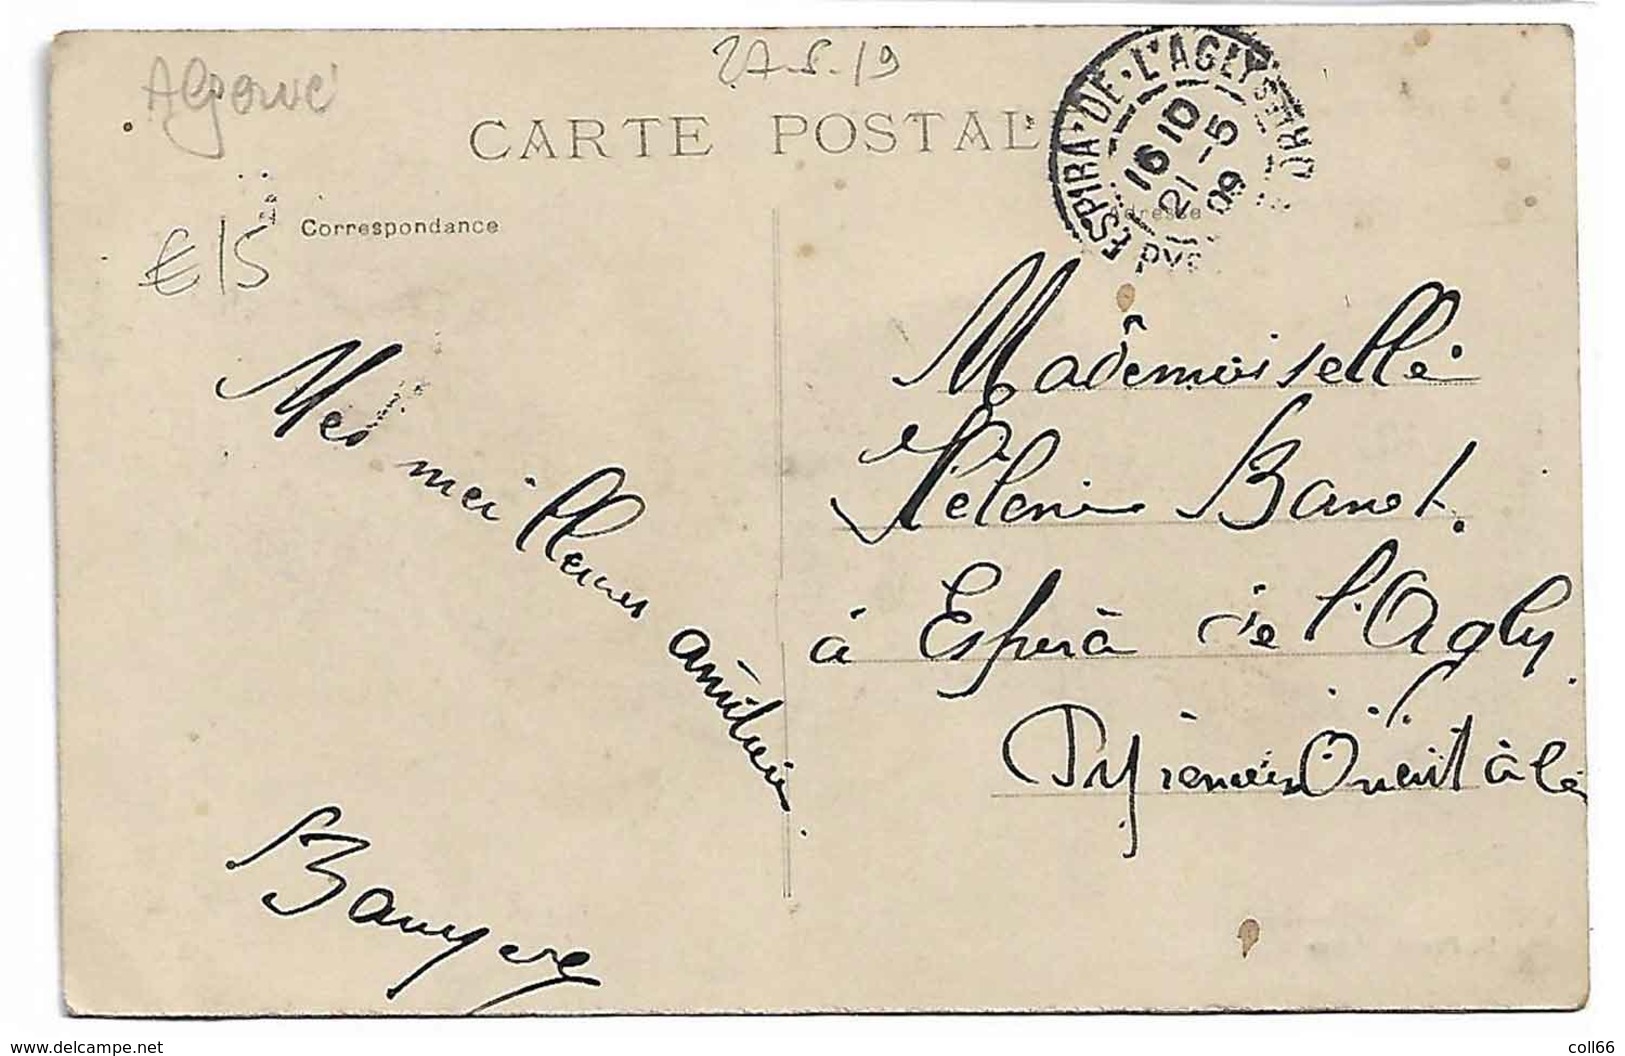 27-5-19
CARTE POSTALE
ESPIRA-DE-L'AGLY
16 10
21 -5
09
€15
Correspondance
Adresse
Mes meilleures amitiés
Mademoiselle
Hélène Banet.
à Espira de l'Agly
Pyrénées Orientales
www.delcampe.net
coll66